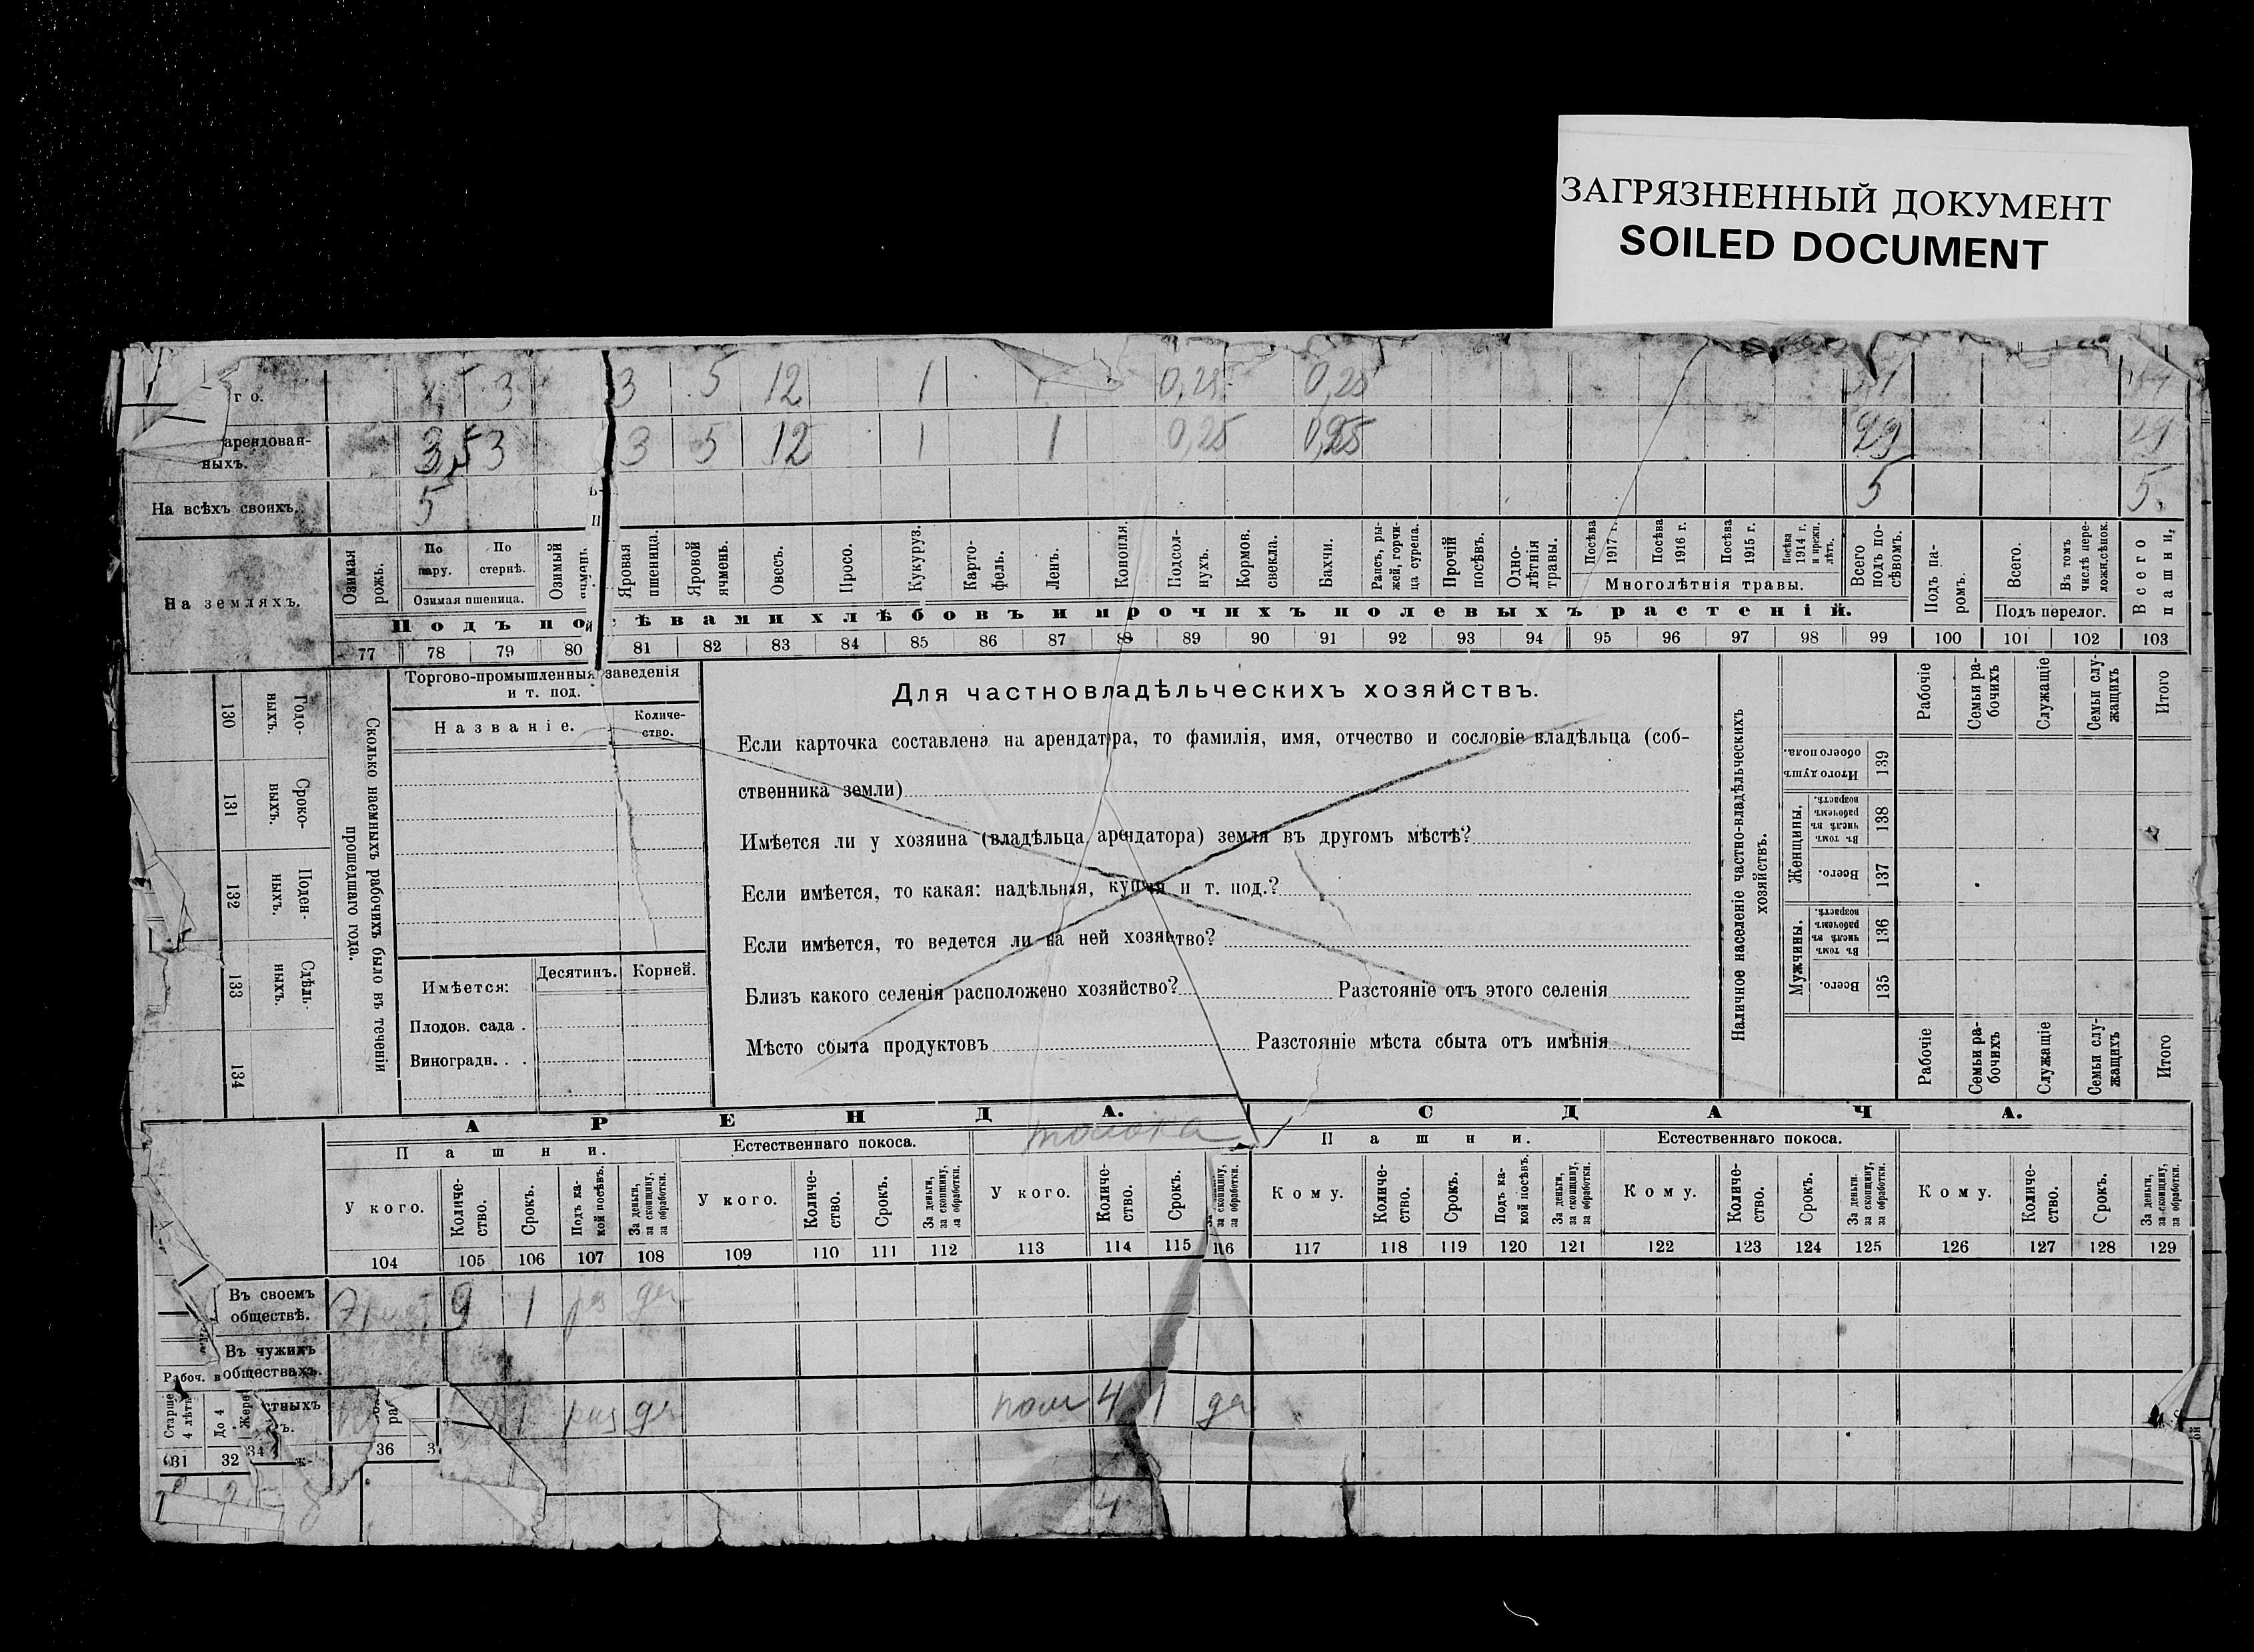 ЗАГРЯЗНЕННЫЙ ДОКУМЕНТ
SOILED DOCUMENT
г о. 3 3 5 12 1 0,25 0,25
арендован-
ныхъ. 3,5 3 3 5 12 1 1 0,25 0,25 29 29
На всѣхъ своихъ. 5 5 5.
На земляхъ.
Озимая рожь.
По пару.
По стернѣ.
Озимая пшеница.
Озимый
Яровая пшеница.
Яровой ячмень.
Овесъ.
Просо.
Кукуруз.
Карто-
фель.
Ленъ.
Конопля.
Подсол-
нухъ.
Кормов. свекла.
Бахчи.
Рапсъ, ры-
жей, горчи-
ца сурепа.
Прочій посѣвъ.
Одно-
лѣтнія травы.
Посѣва 1917 г.
Посѣва 1916 г.
Посѣва 1915 г.
Посѣва 1914 г. и прежн. лѣтъ.
Многолѣтнія травы.
Всего подъ по-
сѣвомъ.
Подъ па-
ромъ.
Всего.
Въ томъ числѣ пере-
ложн.сѣнок.
Подъ перелог.
Всего пашни.
Подъ посѣвами хлѣбовъ и прочихъ полевыхъ растеній.
77 78 79 80 81 82 83 84 85 86 87 88 89 90 91 92 93 94 95 96 97 98 99 100 101 102 103
130 Годо-
выхъ.
131 Сроко-
ныхъ.
132 Поден-
ныхъ.
133 Сдѣль-
ныхъ.
134
Сколько наемныхъ рабочихъ было въ теченіи
прошедшаго года.
Торгово-промышленныя заведенія
и т. под.
Названіе.
Количе-
ство.
Имѣется:
Десятинъ. Корней.
Плодов. сада .
Виноградн. . .
Для частновладѣльческихъ хозяйствъ.
Если карточка составлена на арендатора, то фамилія, имя, отчество и сословіе владѣльца (соб-
ственника земли)
Имѣется ли у хозяина (владѣльца арендатора) земля въ другомъ мѣстѣ?
Если имѣется, то какая: надѣльная, купчая и т. под.?
Если имѣется, то ведется ли на ней хозяйство?
Близъ какого селенія расположено хозяйство? Разстояніе отъ этого селенія
Мѣсто сбыта продуктовъ Разстояніе мѣста сбыта отъ имѣнія
Наличное населеніе частно-владѣльческихъ
хозяйствъ.
Рабочіе
Семьи ра-
бочихъ
Служащіе
Семьи слу-
жащихъ
Итого
Итого душъ обоего пола. 139
Женщины.
Въ томъ числѣ въ рабочемъ возрастѣ. 138
Всего. 137
Мужчины.
Въ томъ числѣ въ рабочемъ возрастѣ. 136
Всего. 135
Рабочіе
Семьи ра-
бочихъ
Служащіе
Семьи слу-
жащихъ
Итого
АРЕНДА.
СДАЧА.
Пашни.
Естественнаго покоса.
толока
Пашни.
Естественнаго покоса.
У кого.
Количе-
ство.
Срокъ.
Подъ ка-
кой посѣвъ.
За деньги, за скопщину, за обработки.
У кого.
Количе-
ство.
Срокъ.
За деньги, за скопщину, за обработки.
У кого.
Количе-
ство.
Срокъ.
за скопщину, за обработки.
Кому.
Количе-
ство.
Срокъ.
Подъ ка-
кой посѣвъ.
За деньги, за скопщину, за обработки.
Кому.
Количе-
ство.
Срокъ.
За деньги, за скопщину, за обработки.
Кому.
Количе-
ство.
Срокъ.
За деньги, за скопщину, за обработки.
104 105 106 107 108 109 110 111 112 113 114 115 116 117 118 119 120 121 122 123 124 125 126 127 128 129
Въ своемъ
обществѣ. 9 1 де
Въ чужихъ
обществахъ.
Рабоч. в
Старше 4 лѣтъ
До 4
Жере
стныхъ
ъ.
1 раз де пом 4 1 де
31 32 34 36 3
4